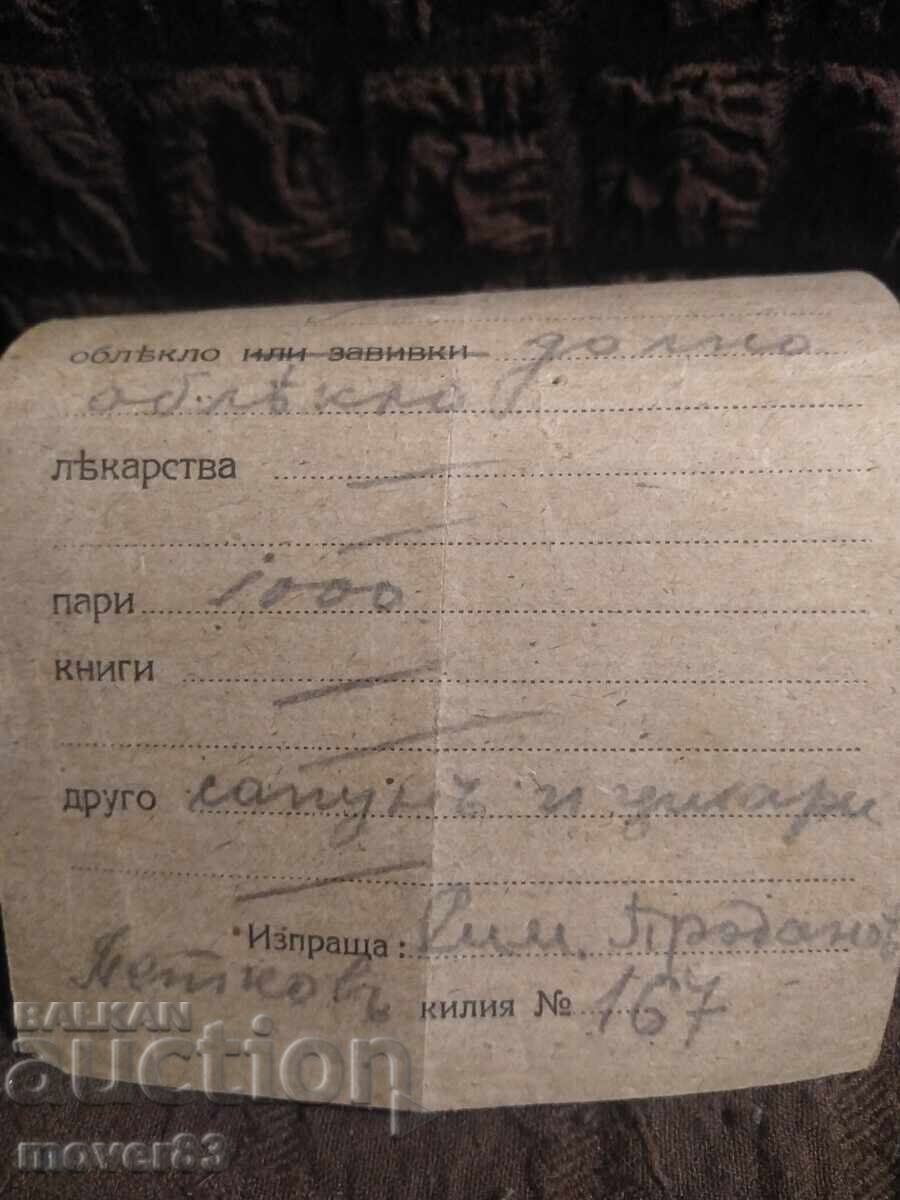 облѣкло или завивки долно
облѣкло
лѣкарства
пари 1000
книги
друго сапунъ и цигари
Изпраща: Дим. Проданов
Петковъ килия № 167
BALKAN
auction
mover83